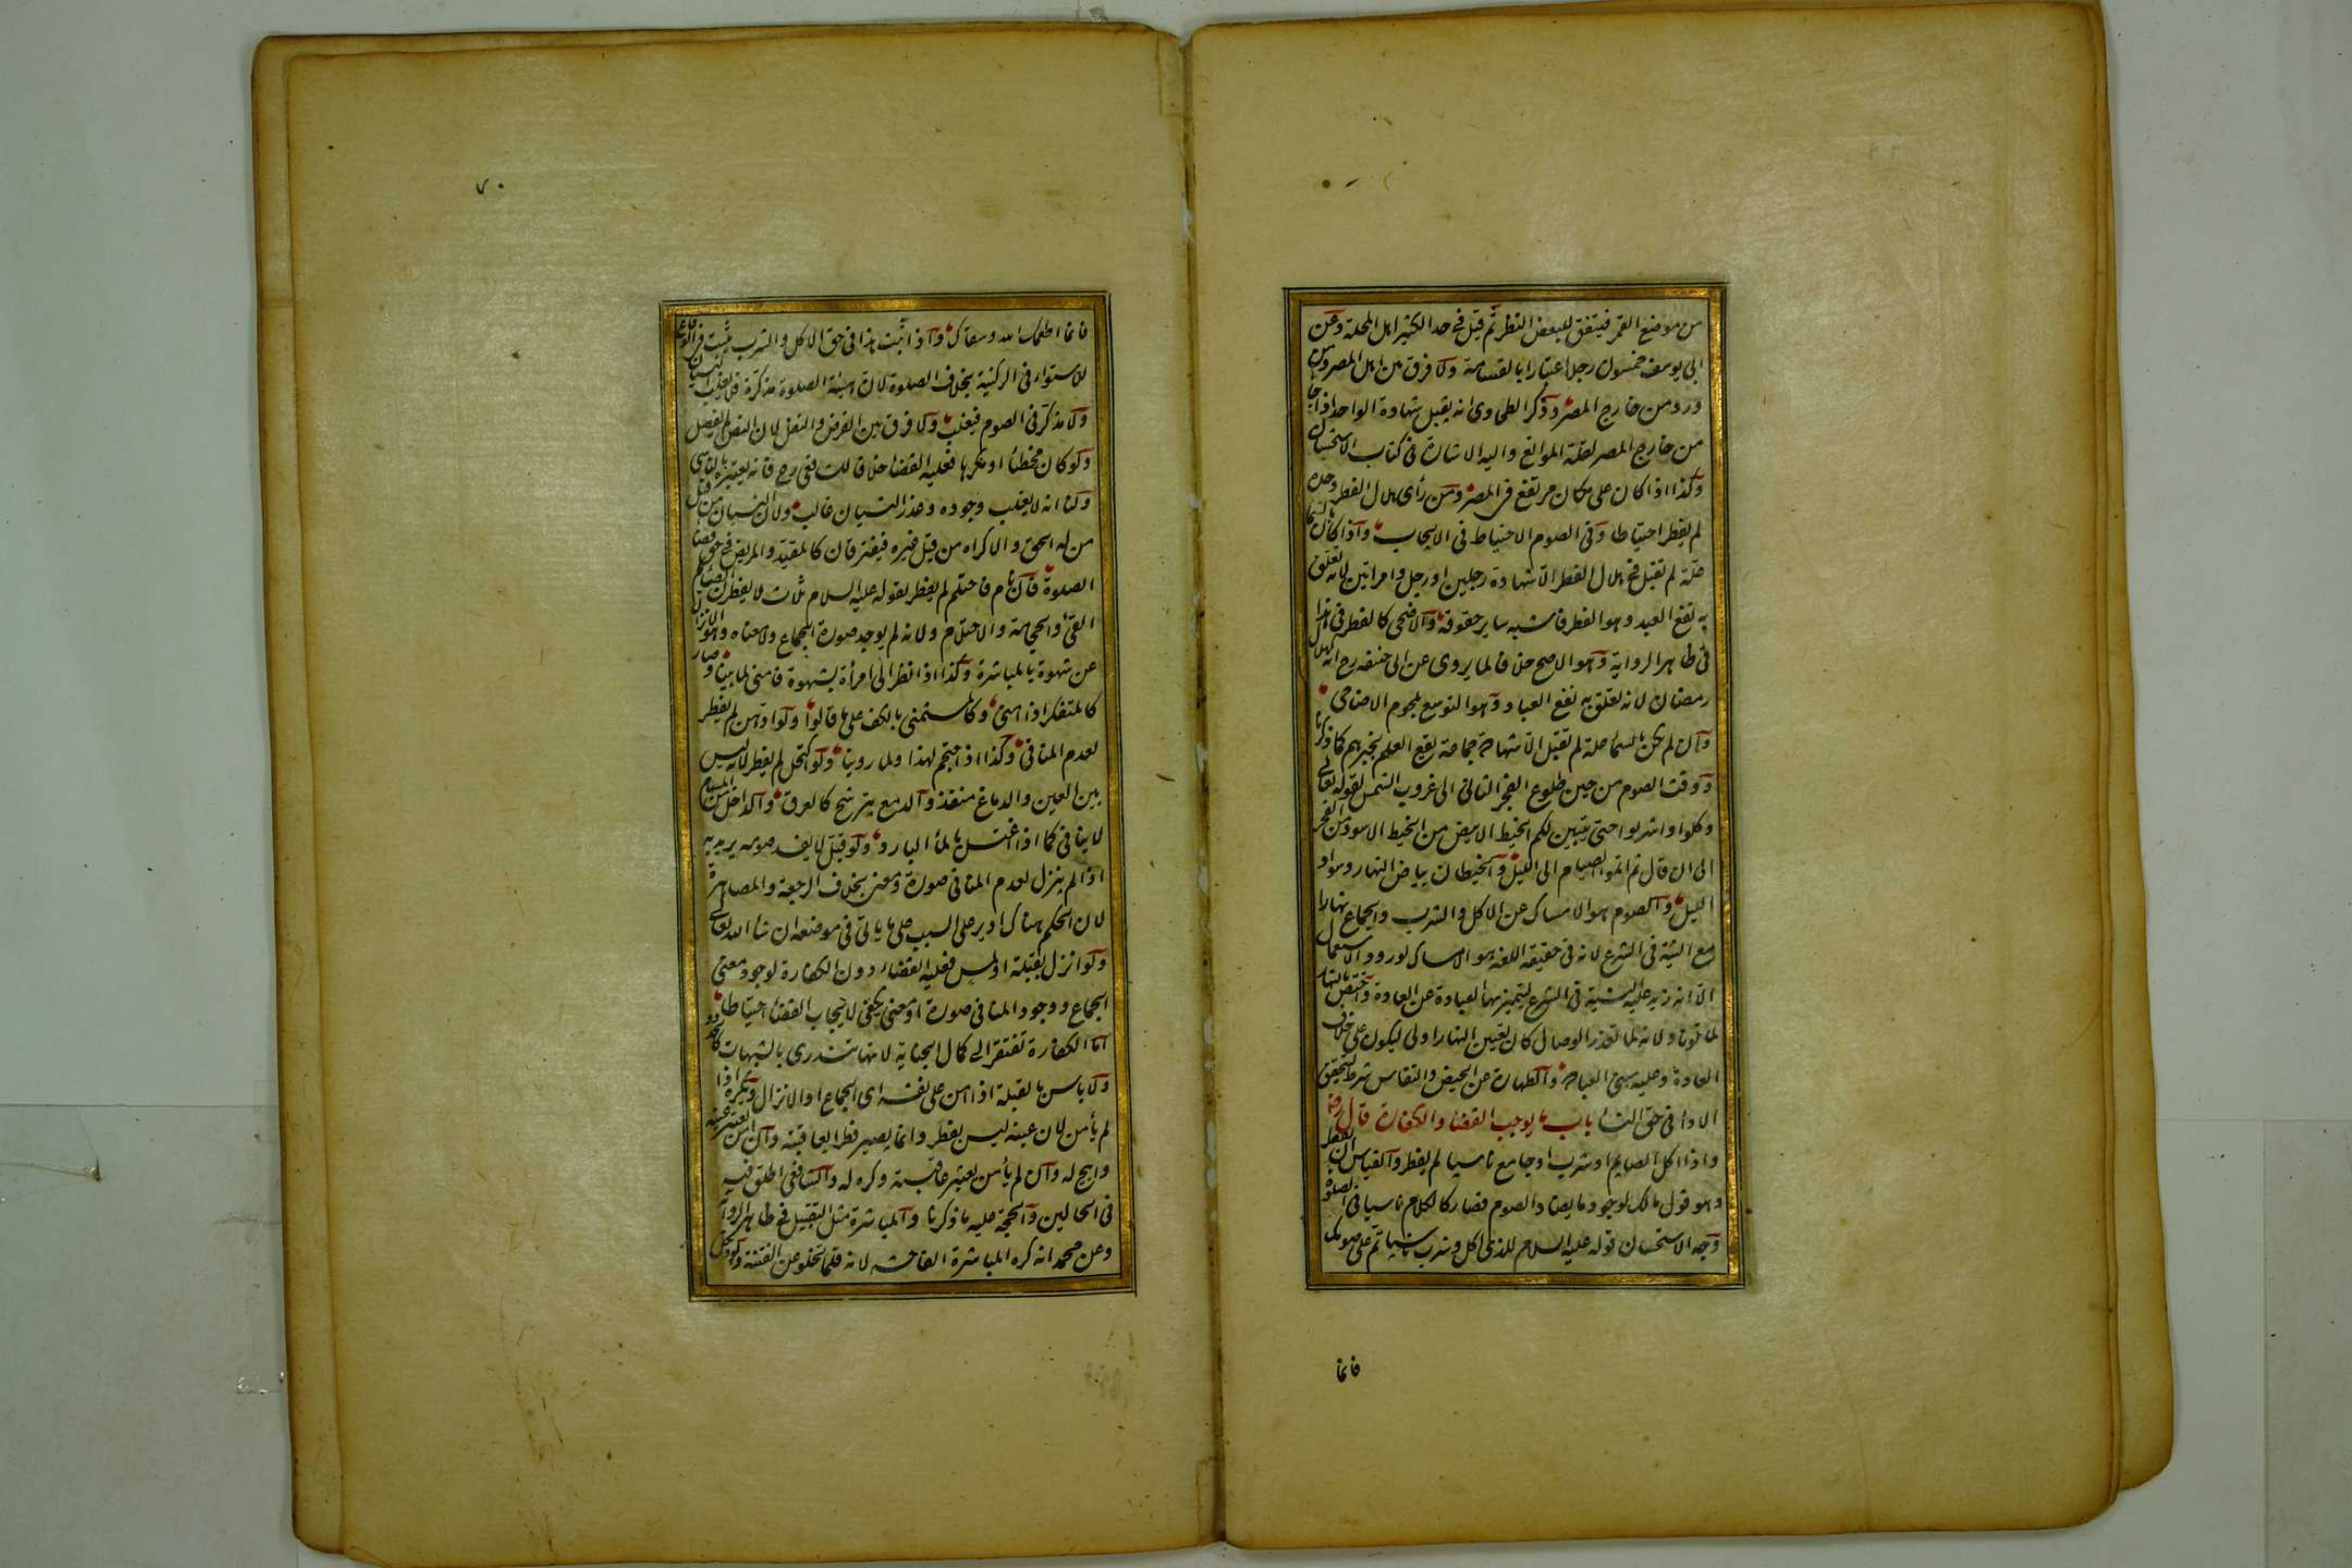 من موضع القمر فيتفق للبعض النظر ثم قيل فى حد الكثير اهل المحلة وعن
ابى يوسف خمسون رجلا اعتبارا بالقسامة ولا فرق بين اهل المصر ومن
ورد من خارج المصر وذكر الطحاوى انه يقبل شهادة الواحد اذا جا
من خارج المصر لقلة الموانع واليه الاشارة فى كتاب الاستحسان
وكذا اذا كان على مكان مرتفع فى المصر ومن رأى هلال الفطر وحده
لم يفطر احتياطا وفى الصوم الاحتياط فى الايجاب واذا كان بالسما
علة لم تقبل فى هلال الفطر الا شهادة رجلين او رجل وامراتين لانه تعلق
به نفع العبد وهو الفطر فاشبه ساير حقوقه والاضحى كالفطر فى هذا
فى ظاهر الرواية وهو الاصح خلافا لما يروى عن ابى حنيفه رح انه كهلال
رمضان لانه تعلق به نفع العباد وهو التوسع بلحوم الاضاحى
وان لم يكن بالسما علة لم تقبل الا شهادة جماعة يقع العلم بخبرهم كما ذكرنا
ووقت الصوم من حين طلوع الفجر الثانى الى غروب الشمس لقوله تعالى
وكلوا واشربوا حتى يتبين لكم الخيط الابيض من الخيط الاسود من الفجر
الى ان قال ثم اتموا الصيام الى الليل والخيطان بياض النهار وسواد
الليل والصوم هو الامساك عن الاكل والشرب والجماع نهارا
مع النية فى الشرع لانه فى حقيقة اللغة هو الامساك لورود الاستعمال
الا انه زيد عليه النية فى الشرع ليتميز بها العبادة عن العادة واختص بالنهار
لما تلونا ولانه لما تعذر الوصال كان تعيين النهار اولى ليكون على خلاف
العادة وعليه مبنى العبادة والطهارة عن الحيض والنفاس شرط لتحقق
الادا فى حق النسا باب ما يوجب القضا والكفارة قال رض
واذا اكل الصايم او شرب او جامع ناسيا لم يفطر والقياس ان يفطر
وهو قول مالك لوجود ما يضاد الصوم فصار كالكلام ناسيا فى الصلوة
وجه الاستحسان قوله عليه السلام للذى اكل وشرب ناسيا تم على صومك
فانما
٧٠
فانما اطعمك الله وسقاك واذا ثبت هذا فى حق الاكل والشرب ثبت فى الوقاع
للاستواء فى الركنية بخلاف الصلوة لان هيئة الصلوة مذكرة فلا يغلب النسيان
ولا مذكر فى الصوم فيغلب ولا فرق بين الفرض والنفل لان النص لم يفصل
ولو كان مخطئا او مكرها فعليه القضا خلافا للشافعى رح فانه يعتبره بالناسى
ولنا انه لا يغلب وجوده وعذر النسيان غالب ولان النسيان من قبل
من له الحق والاكراه من قبل غيره فيفترقان كالمقيد والمريض فى حق قضا
الصلوة فان نام فاحتلم لم يفطر لقوله عليه السلام ثلاث لا يفطرن الصيام
القئ والحجامة والاحتلام ولانه لم يوجد صورة الجماع ولا معناه وهو الانزال
عن شهوة بالمباشرة وكذا اذا نظر الى امرأة بشهوة فامنى لما بينا وصار
كالمتفكر اذا امنى وكالمستمنى بالكف على ما قالوا ولو ادهن لم يفطر
لعدم المنافى وكذا اذا احتجم لهذا ولما روينا ولو اكتحل لم يفطر لانه ليس
بين العين والدماغ منفذ والدمع يترشح كالعرق والداخل من المسام
لا ينافى كما اذا اغتسل بالماء البارد ولو قبل لا يفسد صومه يريد به
اذا لم ينزل لعدم المنافى صورة ومعنى بخلاف الرجعة والمصاهرة
لان الحكم هناك ادير على السبب على ما ياتى فى موضعه ان شا الله تعالى
ولو انزل بقبلة او لمس فعليه القضاء دون الكفارة لوجود معنى
الجماع ووجود المنافى صورة او معنى يكفى لايجاب القضا احتياطا
اما الكفارة تفتقر الى كمال الجناية لانها تندرى بالشبهات كالحدود
ولا باس بالقبلة اذا امن على نفسه اى الجماع او الانزال ويكره اذا
لم يأمن لان عينه ليس بفطر وانما يصير فطرا بعاقبته وان امن يعتبر عينه
وابيح له وان لم يأمن يعتبر عاقبته وكره له والشافعى اطلق فيه
فى الحالين والحجة عليه ما ذكرنا والمباشرة مثل التقبيل فى ظاهر الرواية
وعن محمد انه كره المباشرة الفاحشه لانه قلما تخلو عن الفتنة ولو دخل